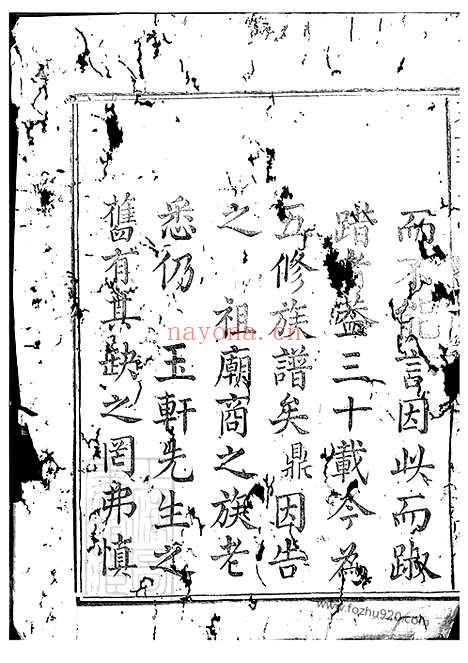 而不能言因此而踧
踖者蓋三十載今為
五修族譜矣鼎因告
之 祖廟商之族老
悉仍 玉軒先生之
舊有其缺之罔弗慎
nayona.cn
www.fozhu920.com